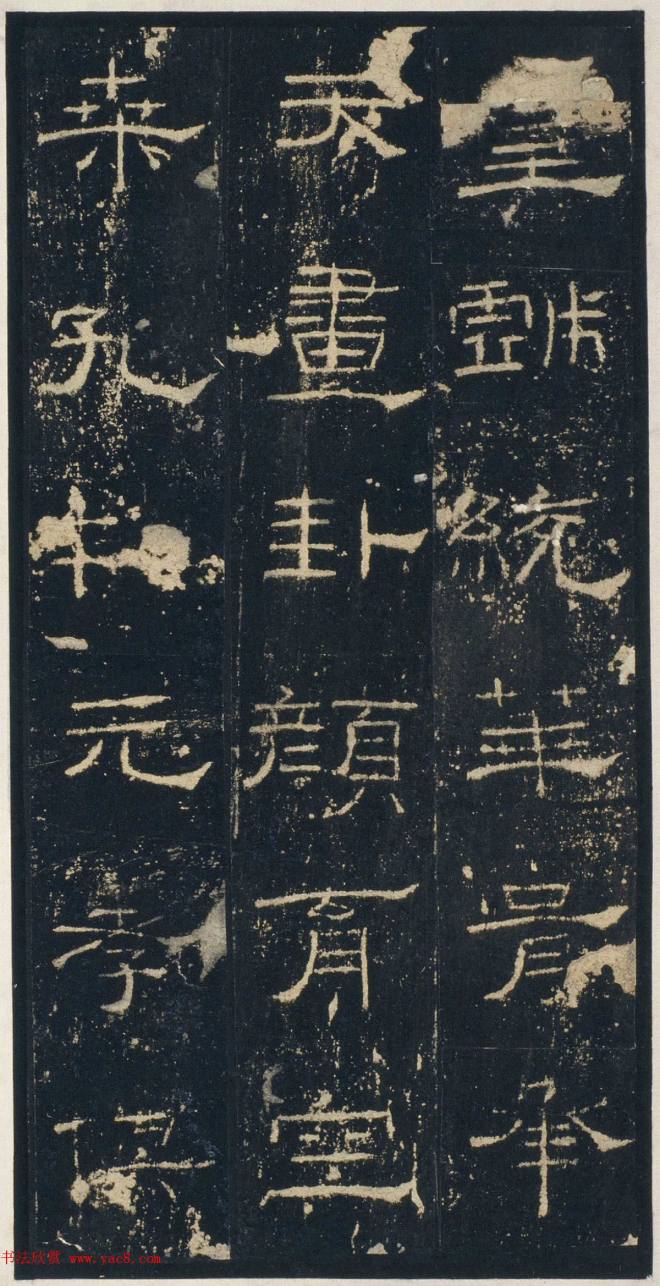 皇戲統華胥承
天畫卦顏育空
桒孔制元孝俱
书法欣赏 www.yac8.com